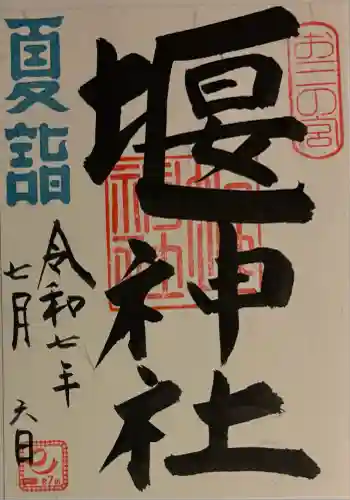 お三の宮
堰神社
夏詣
令和七年
七月六日